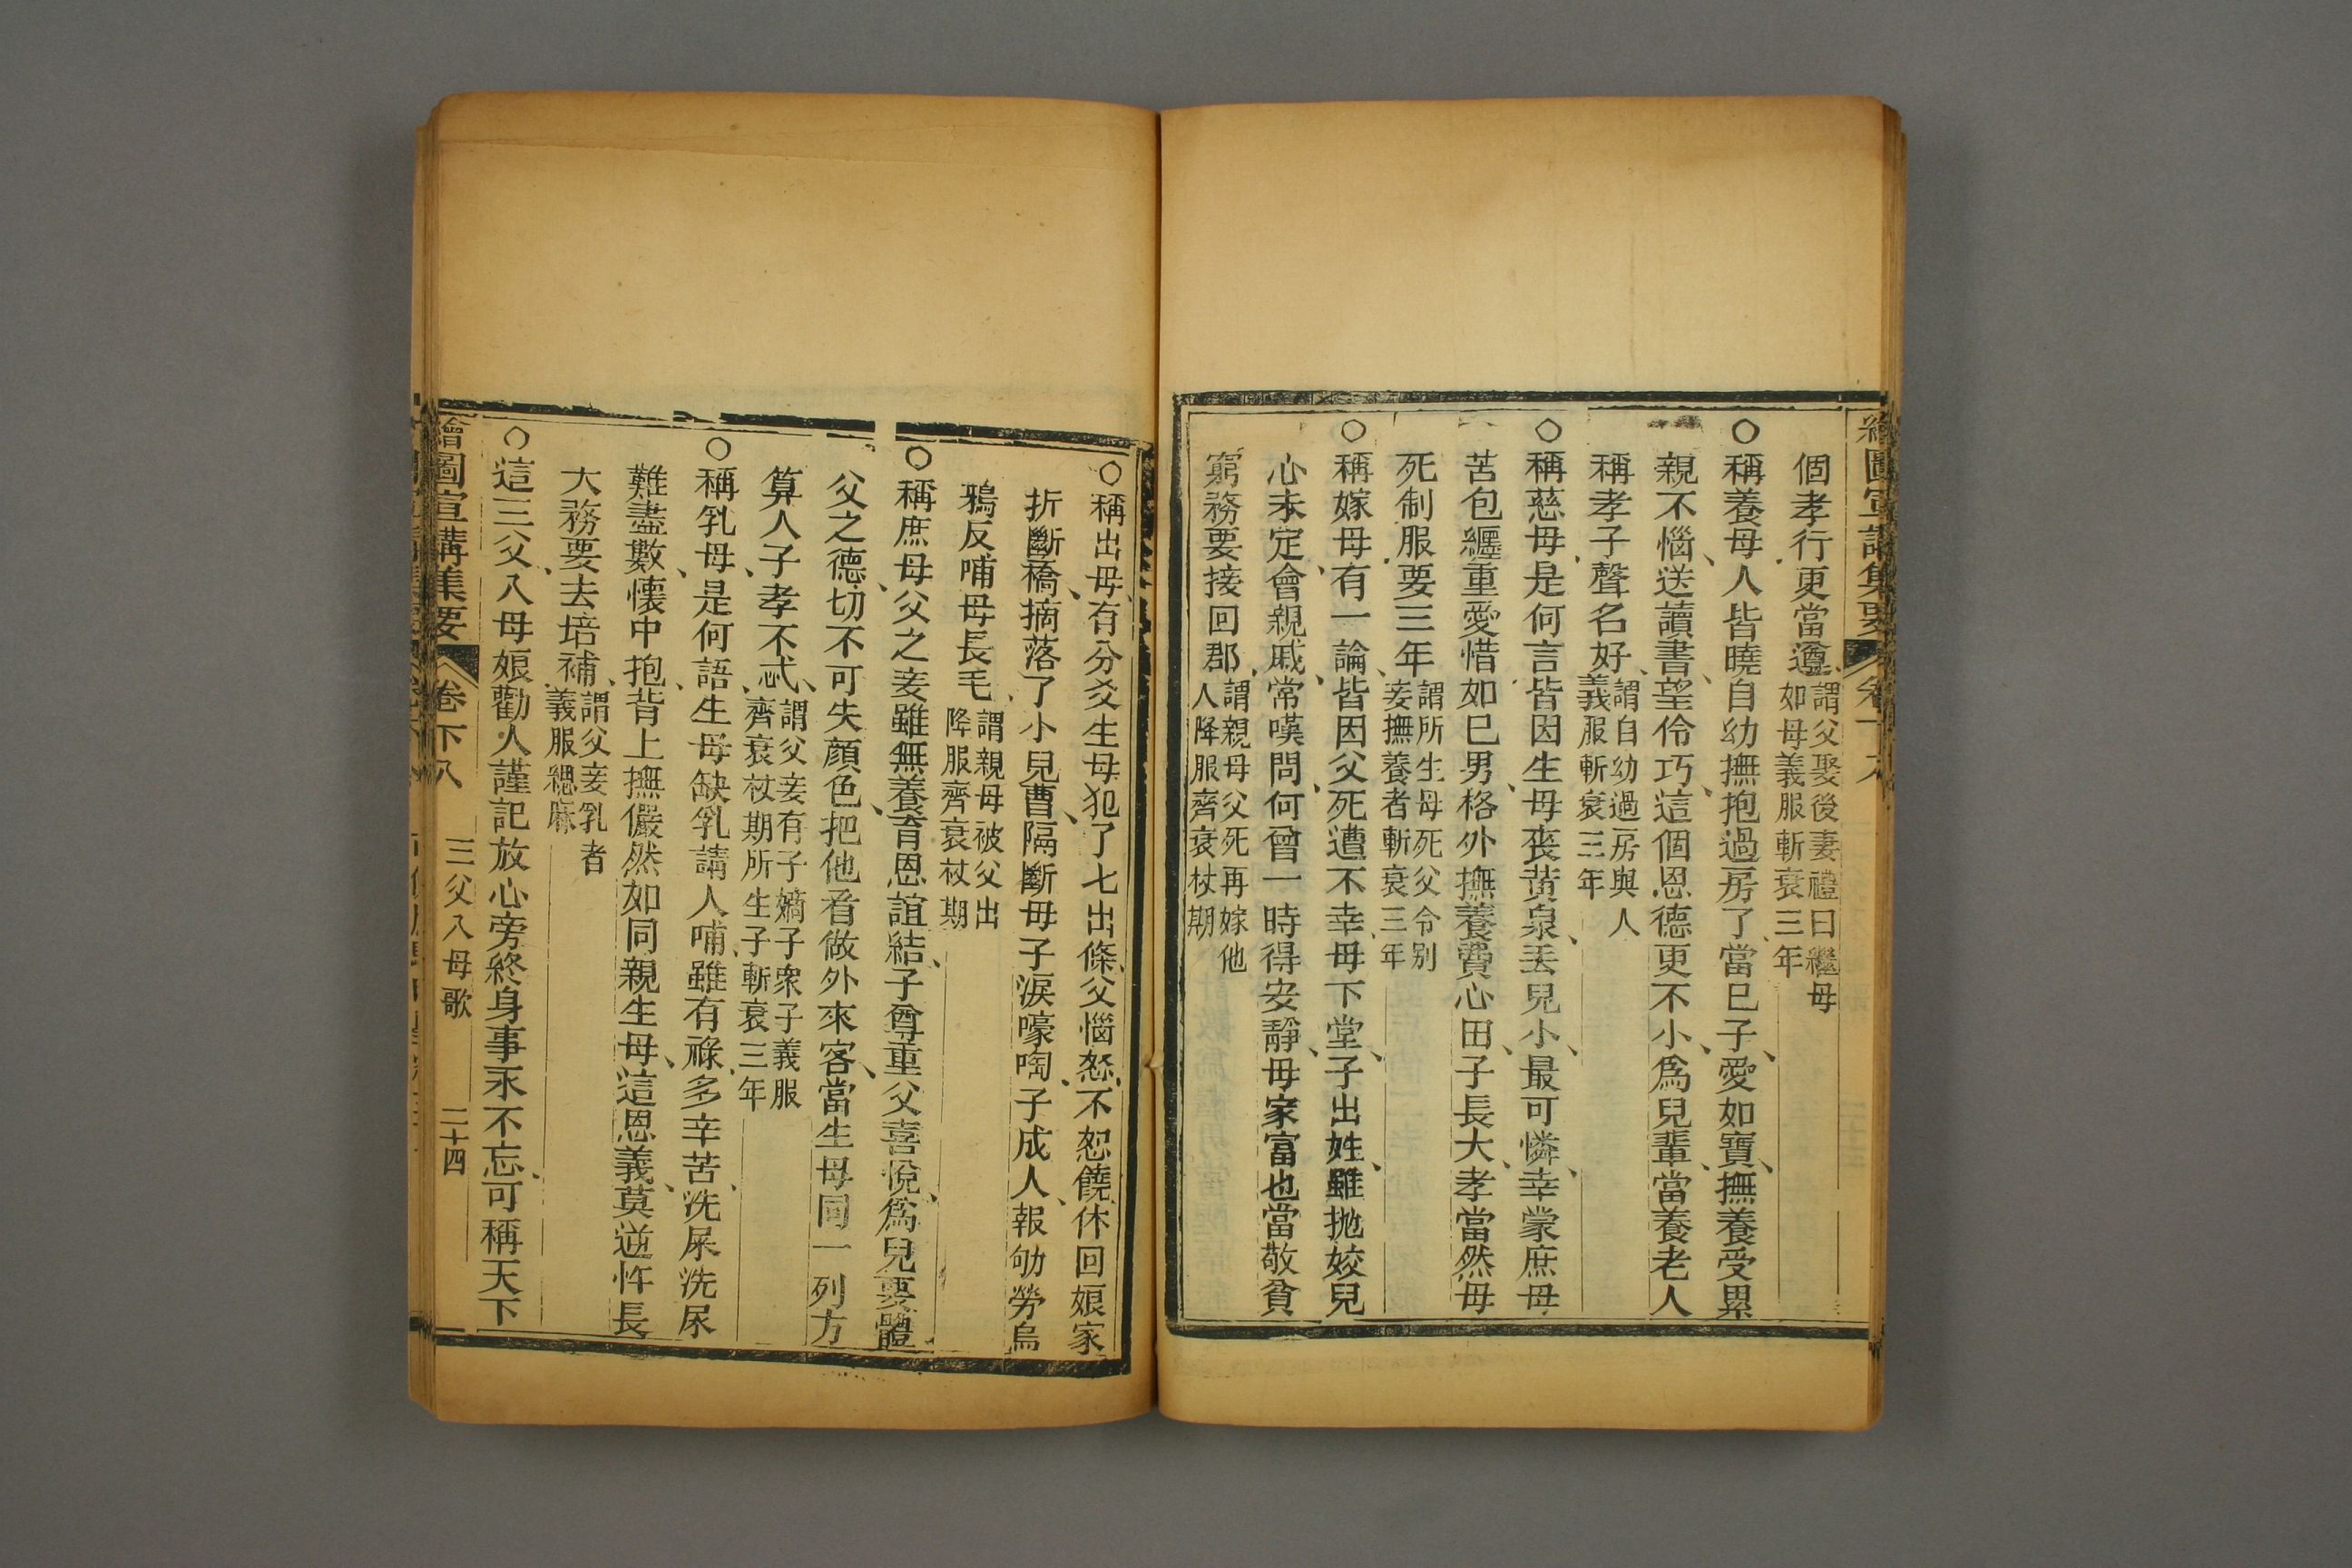 繪圖宣講集要
卷下八
個孝行更當遵、謂父娶後妻禮曰繼母
如母義服斬衰三年
○稱養母人皆曉自幼撫抱過房了當已子、愛如寶、撫養受累
親不惱、送讀書、望伶巧、這個恩德更不小、為兒輩、當養老人
稱孝子聲名好、謂自幼過房與人
義服斬衰三年
○稱慈母、是何言、皆因生母喪黃泉、丟兒小、最可憐、幸蒙庶母
苦包纏重愛惜如已男、格外撫養費心田、子長大、孝當然母
死制服要三年、謂所生母死父令别
妾撫養者斬衰三年
○稱嫁母、有一論、皆因父死遭不幸、母下堂、子出姓、雖拋姣兒
心未定、會親戚、常嘆問、何曾一時得安靜、母家富也當敬貧
窮務要接回郡、謂親母父死再嫁他
人降服齊衰杖期
○稱出母、有分爻生母犯了七出條、父惱怒、不恕饒休回娘家
折斷橋、摘落了小兒曹、隔斷母子淚嚎啕、子成人、報劬勞烏
鴉反哺母長毛、謂親母被父出
降服齊衰杖期
○稱庶母、父之妾雖無養育恩誼結、子尊重父喜悅、為兒要體
父之德、切不可失顏色、把他看做外來客、當生母同一列方
算人子孝不忒、謂父妾有子嫡子衆子義服
齊衰杖期所生子斬衰三年
○稱乳母、是何語、生母缺乳請人哺、雖有祿、多辛苦、洗屎洗尿
難盡數、懷中抱、背上撫儼然如同親生母、這恩義、莫逆忤長
大務要去培補、謂父妾乳者
義服緦麻
○這三父八母娘勸人謹記放心旁終身事永不忘、可稱天下
繪圖宣講集要
卷下八
三父八母歌
二十四